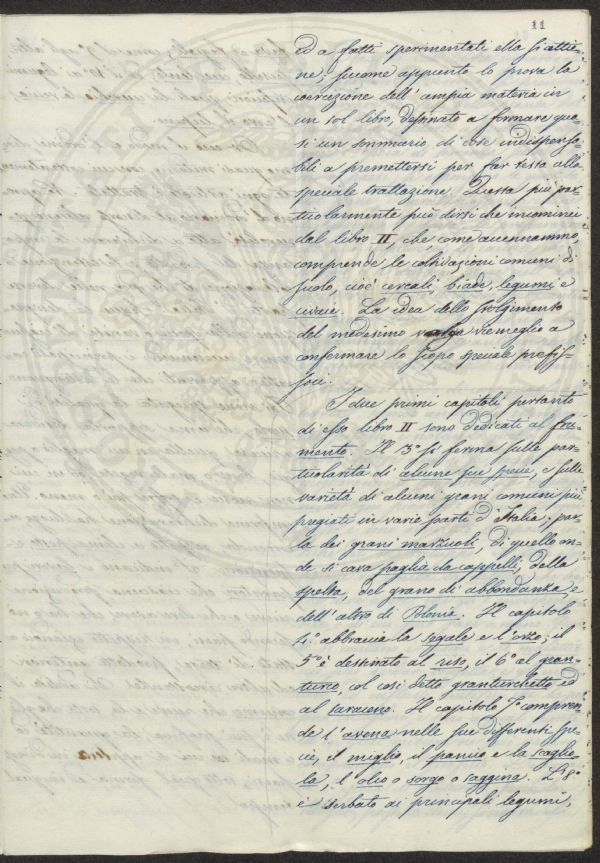 11
ed a fatti sperimentati ella si attie-
ne; siccome appunto lo prova la
coercizione dell' ampia materia in
un sol libro, destinato a formare qua-
si un sommario di cose indispensa-
bili a premettersi per far testa alla
speciale trattazione. Questa più par-
ticolarmente può dirsi che incominci
dal libro II, che come accennammo,
comprende le coltivazioni comuni di
suolo, cioè cereali, biade, legumi e
civaie. La idea dello svolgimento
del medesimo varrà viemeglio a
confermare lo scopo speciale prefis-
soci.
I due primi capitoli pertanto
di esso libro II sono dedicati al fru-
mento. Il 3º si ferma sulle par-
ticolarità di alcune sue specie, e sulle
varietà di alcuni grani comuni più
pregiati in varie parti d'Italia; par-
la dei grani marzuoli, di quello on-
de si cava paglia da cappelli, della
spelta, del grano di abbondanza, e
dell' altro di Polonia. Il capitolo
4º abbraccia la segale e l'orzo; il
5º è destinato al riso, il 6º al gran-
turco, col così detto granturchetto ed
al saraceno. Il capitolo 7º compren-
de l'avena nelle sue differenti spe-
cie, il miglio, il panico e la scaglio-
la, l'olco o sorgo o saggina. L'8º
è serbato ai principali legumi,